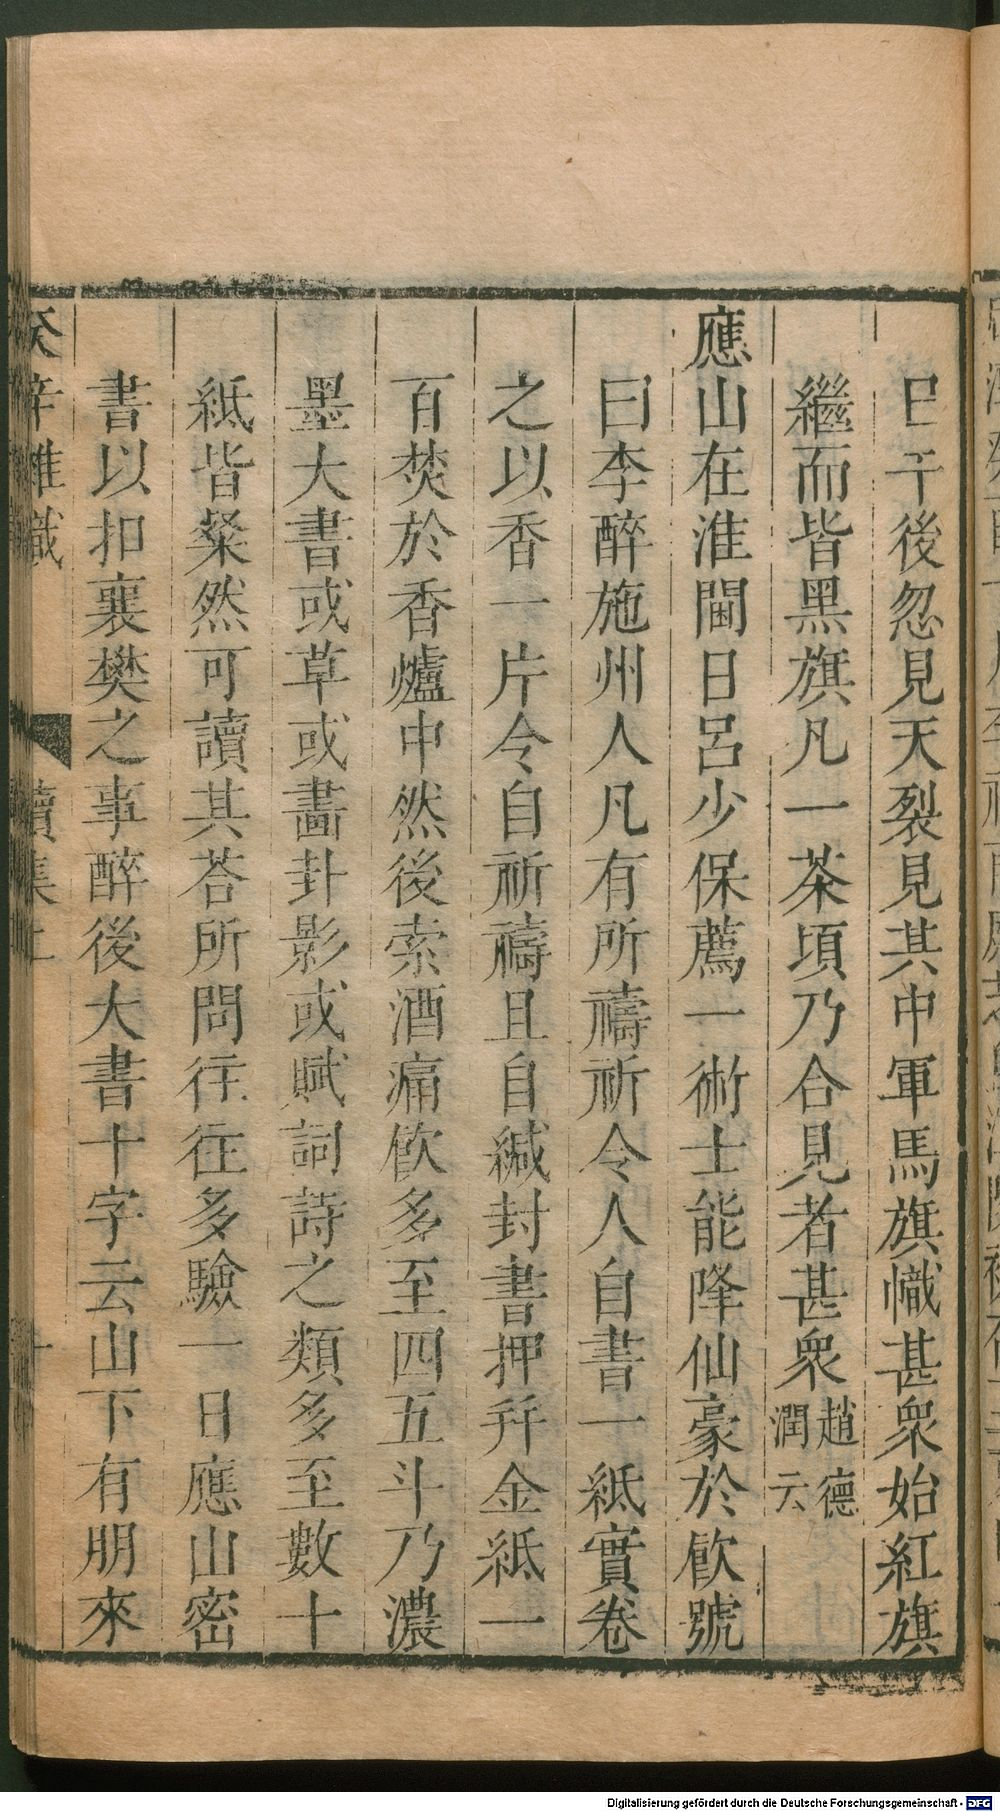 巳午後忽見天裂見其中軍馬旗幟甚衆始紅旗
繼而皆黑旗凡一茶頃乃合見者甚衆趙德潤云
應山在淮閫日呂少保薦一術士能降仙豪於飲號
曰李醉施州人凡有所禱祈令人自書一紙實卷
之以香一片令自祈禱且自緘封書押幷金紙一
百焚於香爐中然後索酒痛飲多至四五斗乃濃
墨大書或草或畵卦影或賦詞詩之類多至數十
紙皆粲然可讀其荅所問往往多驗一日應山密
書以扣襄樊之事醉後大書十字云山下有朋來
癸辛雜識 續集上 十
Digitalisierung gefördert durch die Deutsche Forschungsgemeinschaft - DFG